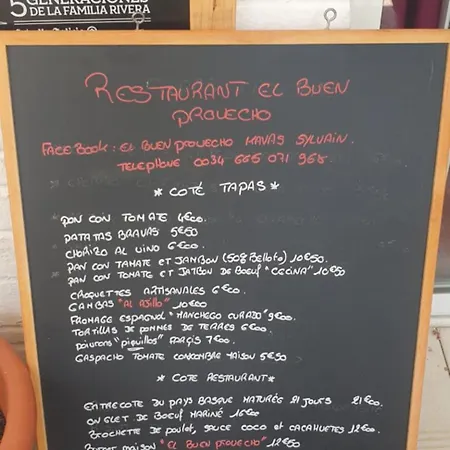 5 GENERACIONES
DE LA FAMILIA RIVERA
RESTAURANT EL BUEN
PROVECHO
FACEBOOK : EL BUEN PROVECHO NAVAS SYLVAIN.
TELEPHONE 0034 665 071 968
* COTÉ TAPAS *
PAN CON TOMATE 4€00.
PATATAS BRAVAS 5€50
CHORIZO AL VINO 6€00.
PAN CON TAMATE ET JAMBON (50% Belloto) 10€50
PAN CON TOMATE ET JATBON DE BOEUF "CECINA" 10€50
CROQUETTES ARTISANALES 6€00.
GAMBAS "AL AJILLO" 10€00
FROMAGE ESPAGNOL "MANCHEGO CURADO" 9€00.
TORTILLAS DE POMMES DE TERRES 6€00.
POIVRONS "PIQUILLOS" FARÇIS 7€00.
GASPACHO TOMATE CONCOMBRE MAISON 5€50
* COTE RESTAURANT *
ENTRECOTE DU PAYS BASQUE MATURÉE 21 JOURS 21€00.
ONGLET DE BOEUF MARINÉ 16€00
BROCHETTE DE POULET, SAUCE COCO ET CACAHUETES 12€00.
MAISON "EL BUEN PROVECHO" 12€50